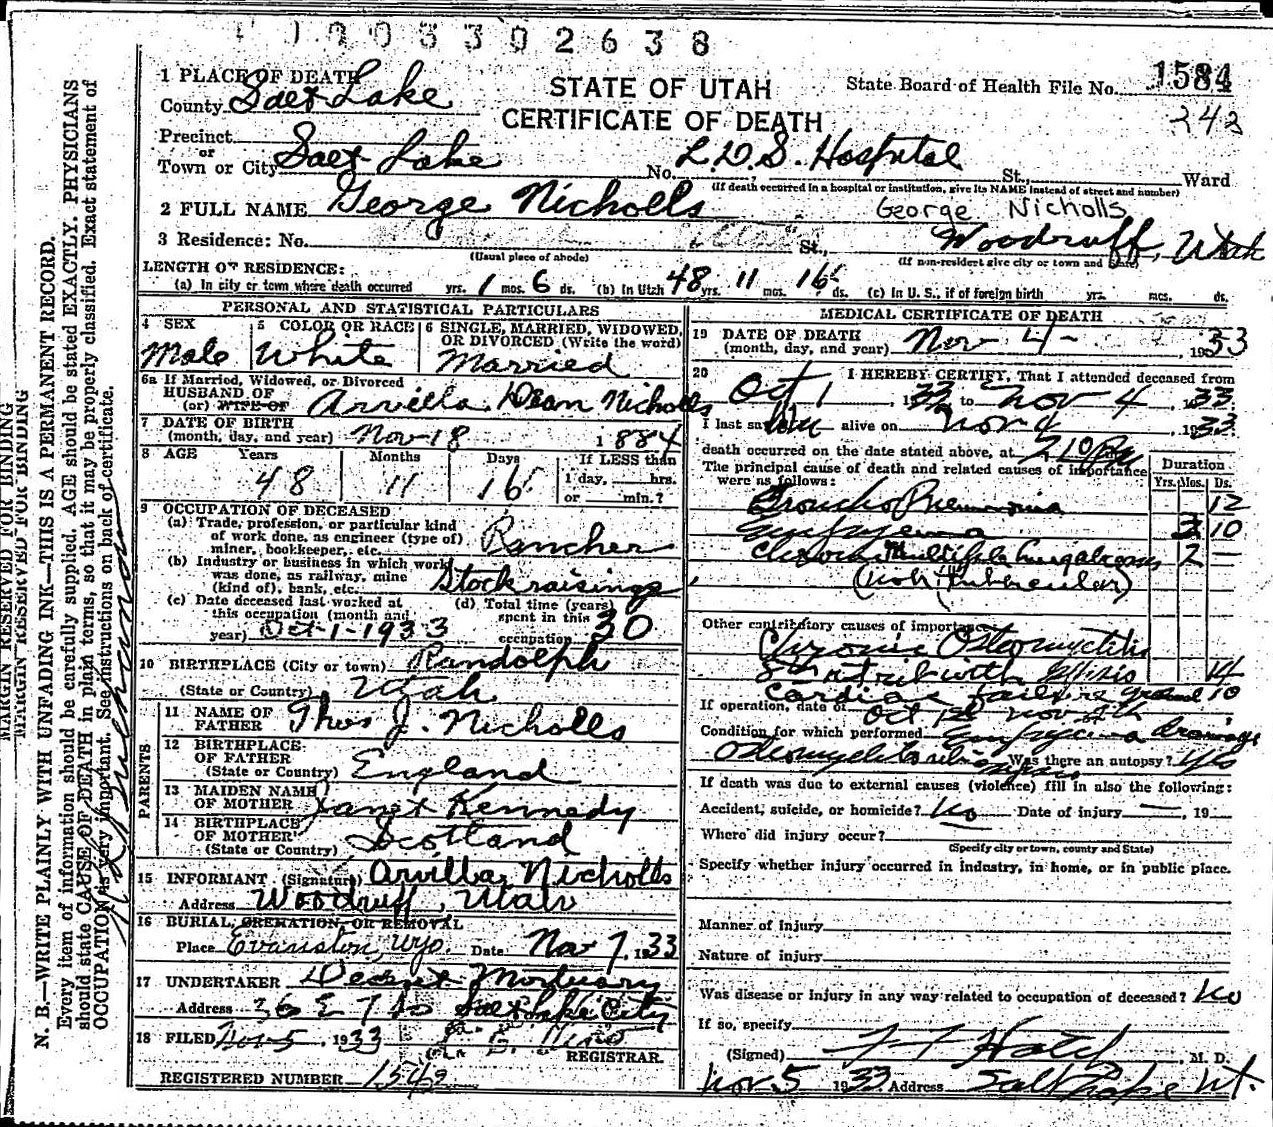 1003302638
1 PLACE OF DEATH
County Salt Lake
STATE OF UTAH
CERTIFICATE OF DEATH
State Board of Health File No. 1584
242
Precinct
or
Town or City Salt Lake No. L.D.S. Hospital St., Ward
(If death occurred in a hospital or institution, give its NAME instead of street and number)
2 FULL NAME George Nicholls George Nicholls
3 Residence: No. St., Woodruff, Utah
(Usual place of abode) (If non-resident give city or town and State)
LENGTH OF RESIDENCE:
(a) In city or town where death occurred yrs. 1 mos. 6 ds. (b) In Utah 48 yrs. 11 mos. 16 ds. (c) In U. S., if of foreign birth yrs. mos. ds.
PERSONAL AND STATISTICAL PARTICULARS
4 SEX Male
5 COLOR OR RACE White
6 SINGLE, MARRIED, WIDOWED, OR DIVORCED (Write the word) Married
6a If Married, Widowed, or Divorced
HUSBAND OF
(or) WIFE OF Arvilla Dean Nicholls
7 DATE OF BIRTH
(month, day, and year) Nov 18 1884
8 AGE Years Months Days If LESS than
48 11 16 1 day, hrs.
or min.?
9 OCCUPATION OF DECEASED
(a) Trade, profession, or particular kind
of work done, as engineer (type of)
miner, bookkeeper, etc. Rancher
(b) Industry or business in which work
was done, as railway, mine
(kind of), bank, etc. Stock raisings
(c) Date deceased last worked at
this occupation (month and
year) Oct-1-1933
(d) Total time (years)
spent in this
occupation 30
10 BIRTHPLACE (City or town) Randolph
(State or Country) Utah
PARENTS
11 NAME OF
FATHER Thos J. Nicholls
12 BIRTHPLACE
OF FATHER
(State or Country) England
13 MAIDEN NAME
OF MOTHER Janet Kennedy
14 BIRTHPLACE
OF MOTHER
(State or Country) Scotland
15 INFORMANT (Signature) Arvilla Nicholls
Address Woodruff, Utah
16 BURIAL, CREMATION OR REMOVAL
Place Evanston, Wyo. Date Nov 7, 1933
17 UNDERTAKER Deseret Mortuary
Address 36 E 7 So Salt Lake City
18 FILED Nov 5, 1933
REGISTRAR.
REGISTERED NUMBER 1542
MEDICAL CERTIFICATE OF DEATH
19 DATE OF DEATH
(month, day, and year) Nov 4- , 1933
20 I HEREBY CERTIFY, That I attended deceased from
Oct 1, 1933 to Nov 4, 1933
I last saw him alive on Nov 4, 1933
death occurred on the date stated above, at
The principal cause of death and related causes of importance
were as follows:
Duration
Yrs. Mos. Ds.
Broncho Pneumonia 12
Empyema 3 10
Chronic Multiple 2 —
(not tubercular)
Other contributory causes of importance
Chronic Osteomyelitis
14
Cardiac failure 10
If operation, date of Oct 1st Nov 2th
Condition for which performed Empyema drainage
Was there an autopsy? Yes
If death was due to external causes (violence) fill in also the following:
Accident, suicide, or homicide? No Date of injury — , 19
Where did injury occur?
(Specify city or town, county and State)
Specify whether injury occurred in industry, in home, or in public place.
Manner of injury
Nature of injury
Was disease or injury in any way related to occupation of deceased? No
If so, specify
(Signed) F F Hatch, M. D.
Nov 5 1933 Address Salt Lake Ut.
MARGIN RESERVED FOR BINDING
MARGIN RESERVED FOR BINDING
N. B.—WRITE PLAINLY WITH UNFADING INK—THIS IS A PERMANENT RECORD.
Every item of information should be carefully supplied. AGE should be stated EXACTLY. PHYSICIANS
should state CAUSE OF DEATH in plain terms, so that it may be properly classified. Exact statement of
OCCUPATION is very important. See instructions on back of certificate.